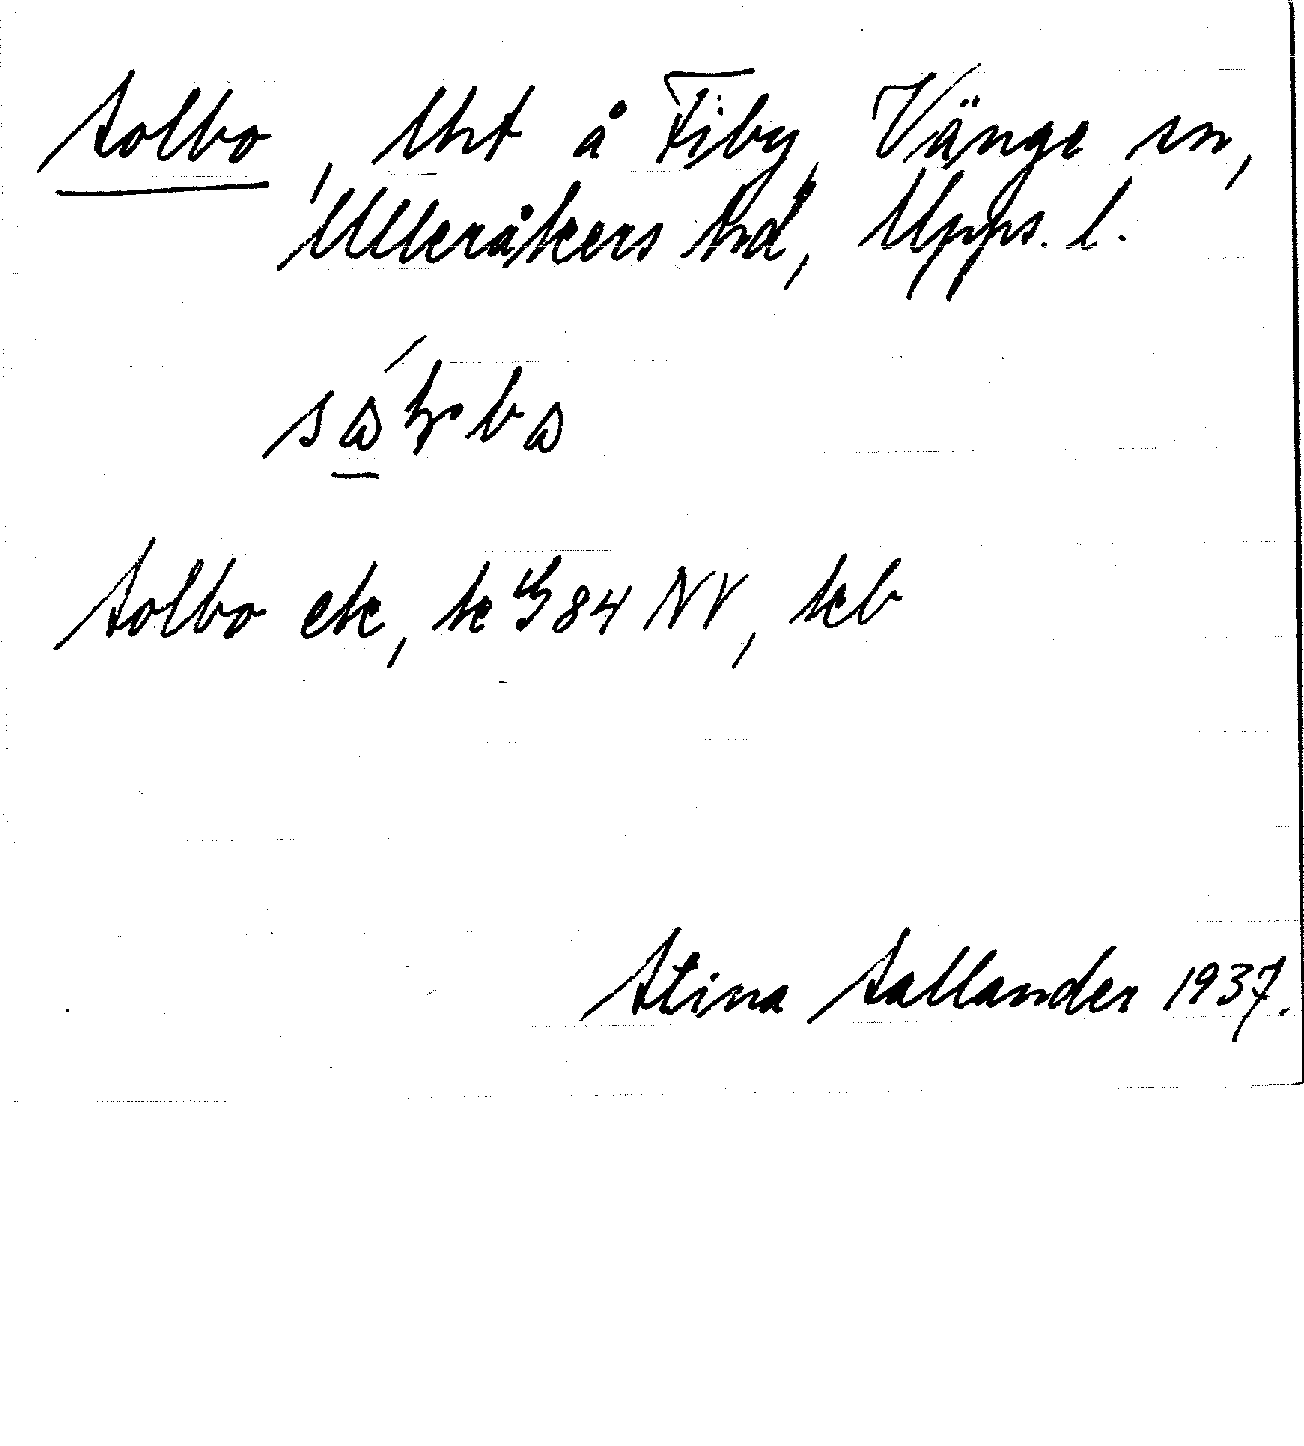 Solbo, lht å Fiby, Vänge sn,
Ulleråkers hd, Upps. l.
Solbo ek, k 84 NV, kb
Stina Sallander 1937.